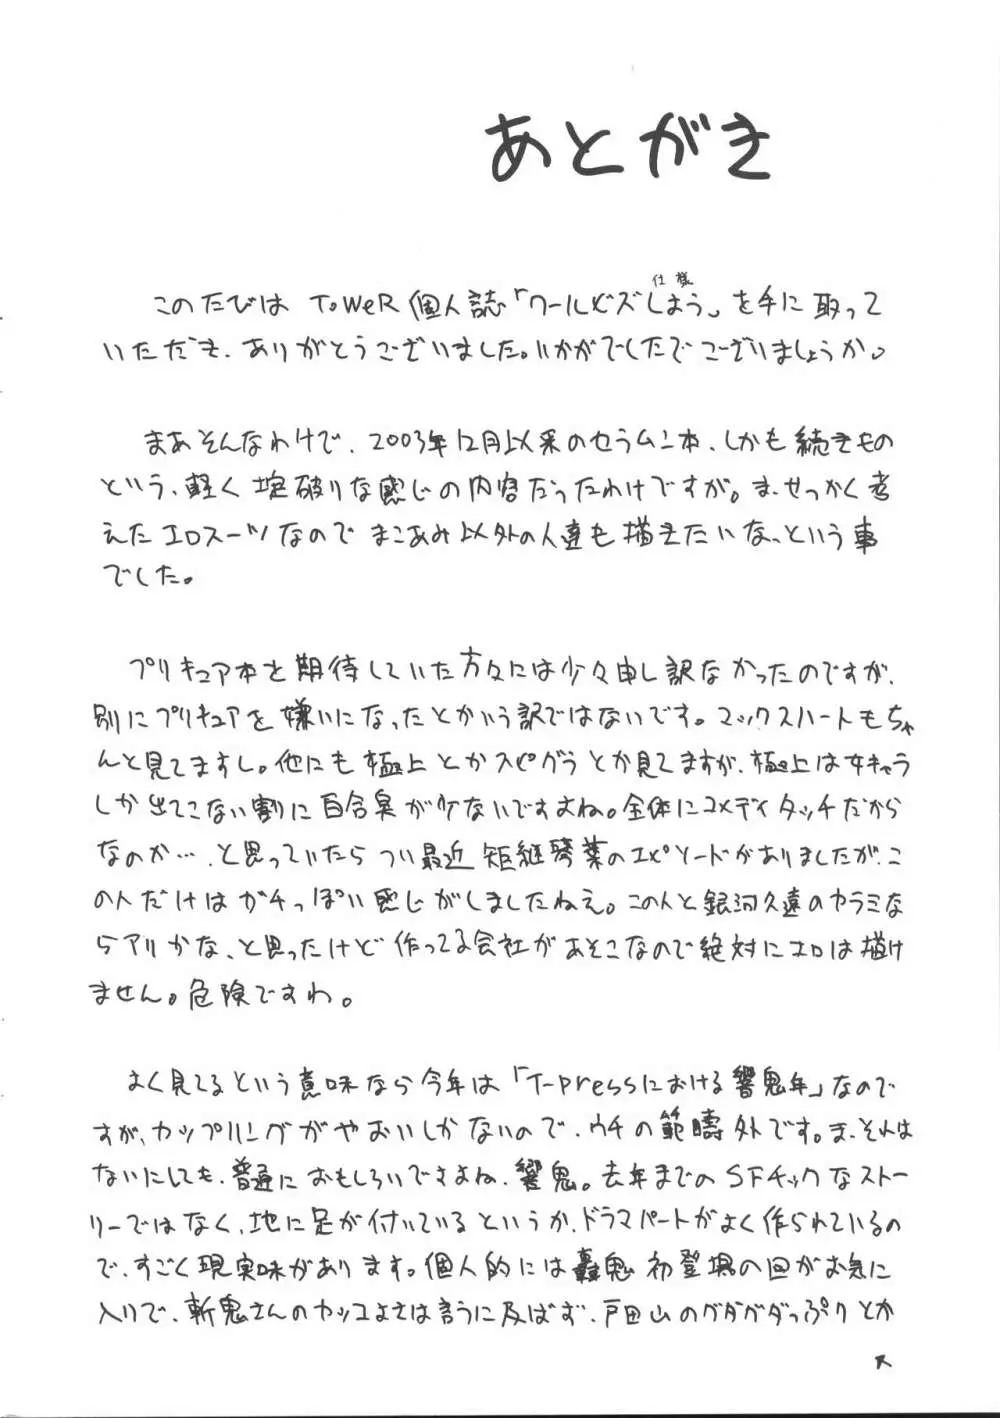 あとがき
仕様
このたびは ToWeR 個人誌「ワールドズしよう」を手に取って
いただき、ありがとうございました。いかがでしたでございましょうか。
まあそんなわけで、2003年12月以来のセラムン本、しかも続きもの
という、軽く掟破りな感じの内容だったわけですが。ま、せっかく考
えたエロスーツなので まこあみ以外の人達も描きたいな、という事
でした。
プリキュア本を期待していた方々には少々申し訳なかったのですが、
別にプリキュアを嫌いになったとかいう訳ではないです。マックスハートもちゃ
んと見てますし。他にも極上とかスピグラとか見てますが、極上は女キャラ
しか出てこない割に百合臭がケないですよね。全体にコメディタッチだから
なのか…、と思っていたらつい最近 矩継琴葉のエピソードがありましたが、こ
の人だけはガチっぽい感じがしましたねえ。この人と銀河久遠のカラミな
らアリかな、と思ったけど作ってる会社があそこなので絶対にエロは描け
ません。危険ですわ。
よく見てるという意味なら今年は「T-pressにおける響鬼年」なので
すが、カップリングがやおいしかないので、ウチの範疇外です。ま、それは
ないにしても、普通におもしろいですよね、響鬼。去年までのSFチックなストー
リーではなく、地に足が付いているというか、ドラマパートがよく作られているの
で、すごく現実味があります。個人的には轟鬼初登場の回がお気に
入りで、斬鬼さんのカッコよさは言うに及ばず、戸田山のグダグダっぷりとか